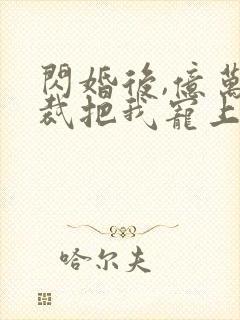 閃婚後,億萬
裁把我寵上
哈尔夫